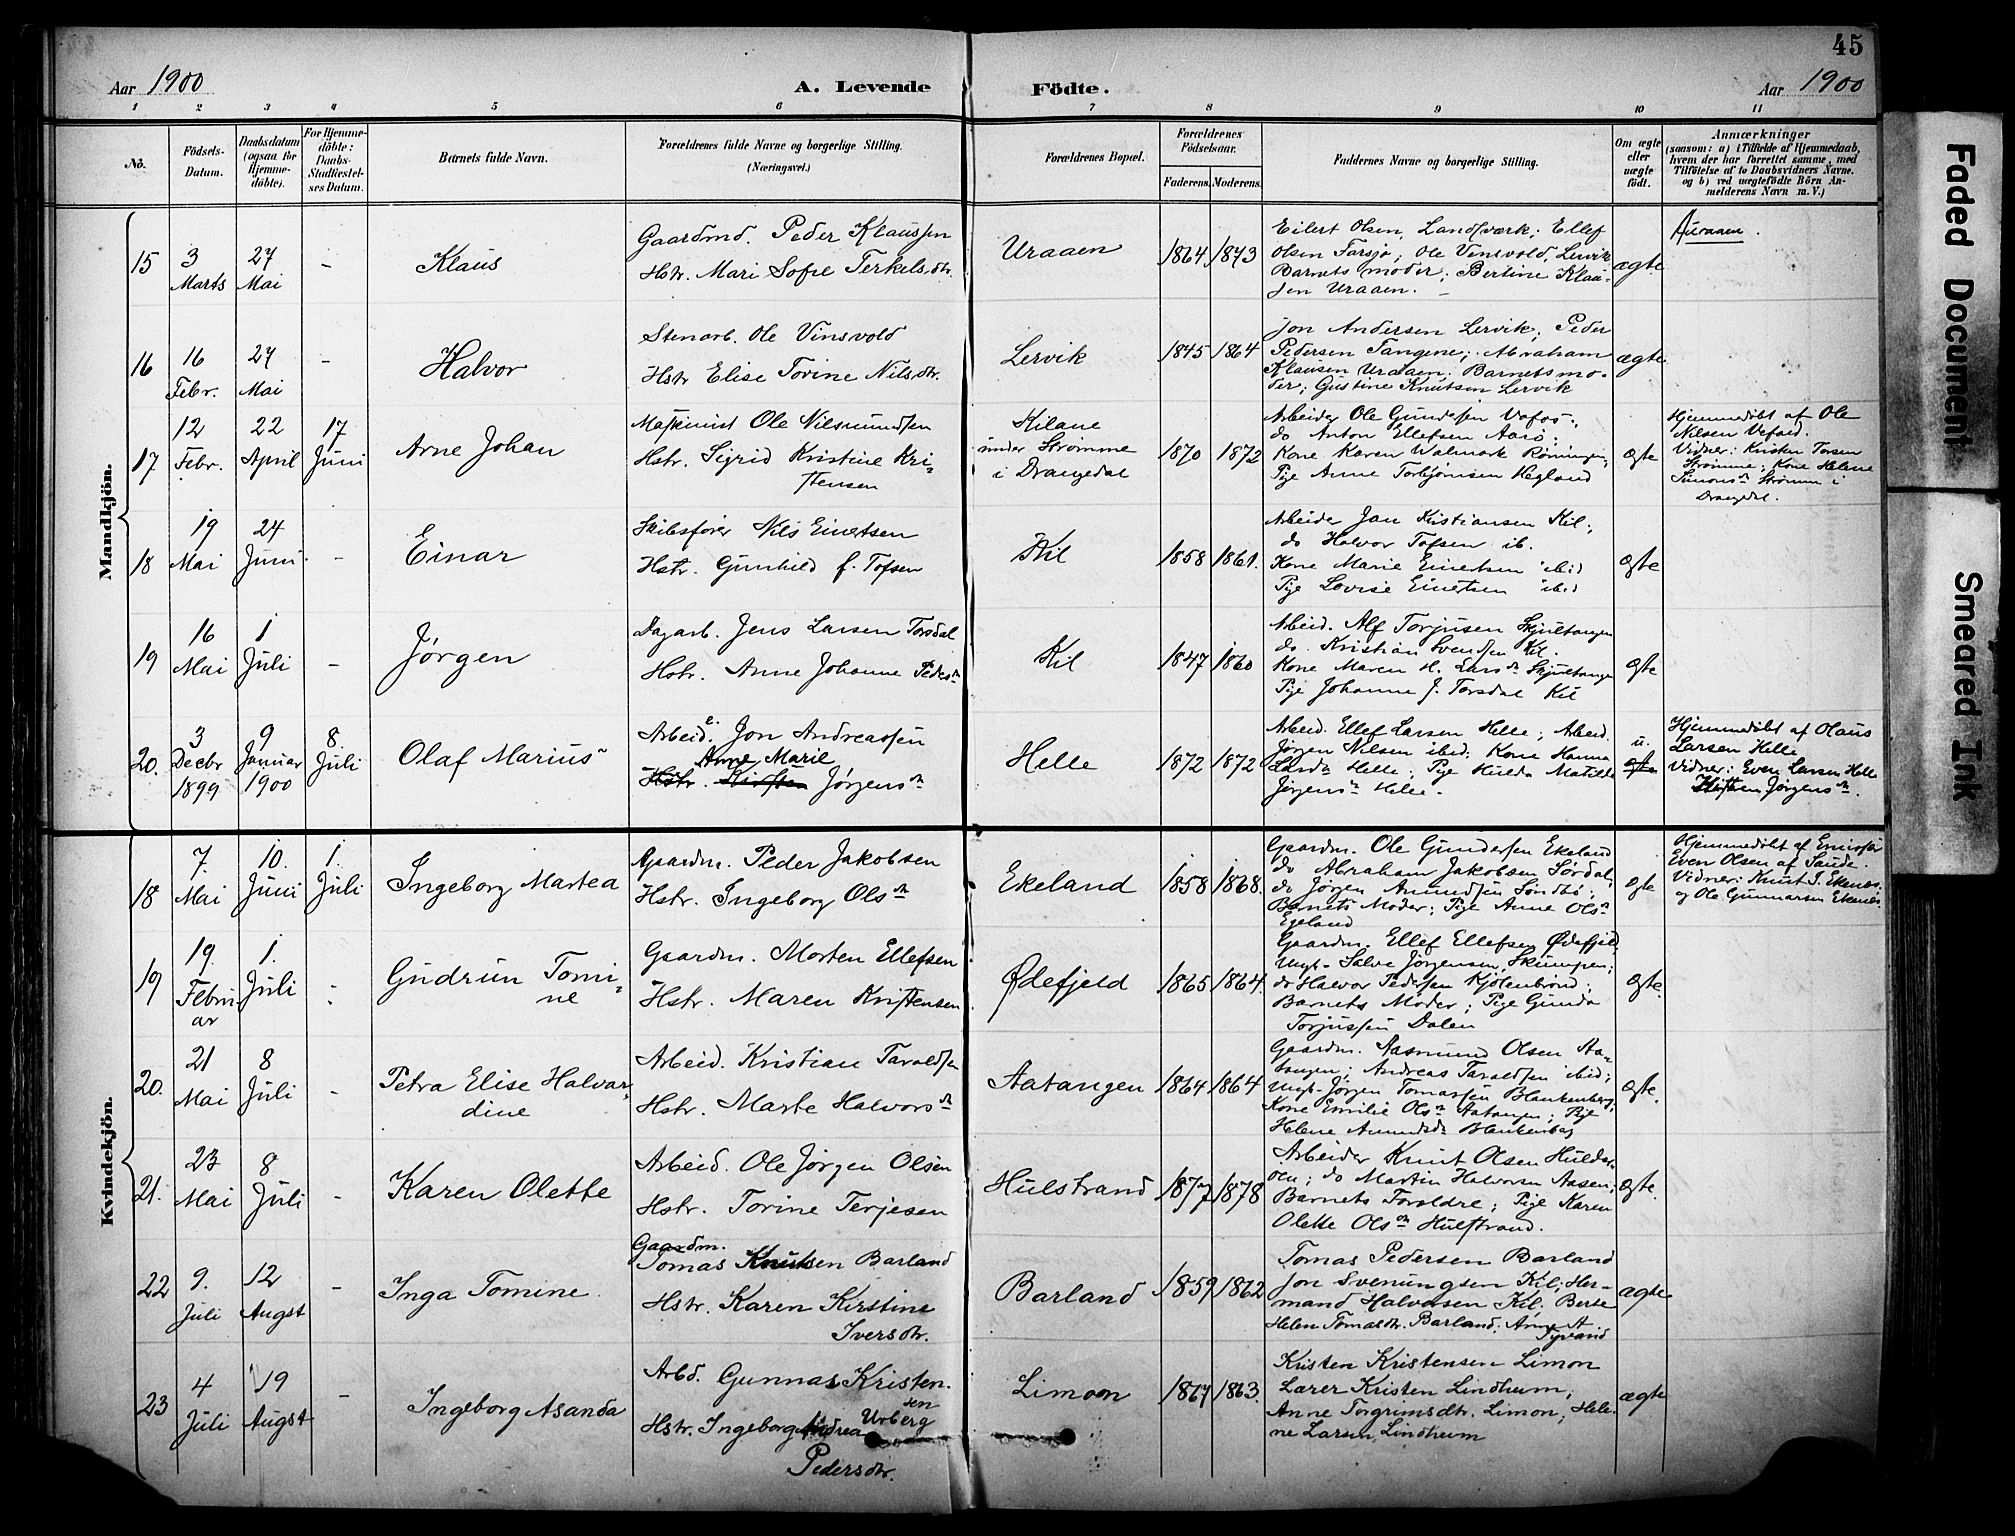 45
Aar 1900
A. Levende
Födte.
Aar 1900
1 2 3 4 5 6 7 8 9 10 11
No.
Födsels-
Datum.
Daabsdatum
(ogsaa for
Hjemme-
döbte).
For Hjemme-
döbte:
Daabs-
Stadfæstel-
ses Datum.
Barnets fulde Navn.
Forældrenes fulde Navne og borgerlige Stilling.
(Næringsvei.)
Forældrenes Bopæl.
Forældrenes
Födselsaar.
Faderens. Moderens.
Faddernes Navne og borgerlige Stilling.
Om ægte
eller
uægte
födt.
Anmærkninger
(saasom: a) i Tilfælde af Hjemmedaab,
hvem der har forrettet samme, med
Tilföielse af to Daabsvidners Navne.
og b) ved uægtefödte Börn An-
melderens Navn m. V.)
Mandkjön.
15
3
Marts
27
Mai
-
Klaus
Gaardmd. Peder Klaussen
Hstr. Mari Sofie Terkelsdtr.
Uraaen
1864 1873
Eilert Olsen, Landsværk; Ellef
Olsen Farsjø; Ole Vinsvold, Lervik
Barnets moder; Bertine Klau-
sen Uraaen.
ægte
Auraaen.
16
16
Febr.
27
Mai
-
Halvor
Stenarb. Ole Vinsvold
Hstr Elise Torine Nilsdtr.
Lervik
1845 1864
Jon Andersen Lervik; Peder
Pedersen Tangene; Abraham
Klausen Uraaen; Barnets mo-
der; Gustine Knutsen Lervik
ægte
17
12
Febr.
22
April
17
Juni
Arne Johan
Maskinist Ole Nilsmundsen
Hstr. Sigrid Kristine Kri-
stensen
Kilane
under Strømme
i Drangedal
1870 1872
Arbeider Ole Gundersen Vafos;
do Anton Ellefsen Aarø;
Kone Karen Walmark Røningen;
Pige Anne Torbjørnsen Hegland
ægte
Hjemmedøbt af Ole
Nilsen Vefald.
Vidner: Kristen Torsen
Strømme; Kone Helene
Simonsdr Strømm i
Drangedal.
18
19
Mai
24
Juni
-
Einar
Skibsfører Nils Einertsen
Hstr. Gunhild f. Tofsen
Kil
1858 1861.
Arbeider Jan Kristiansen Kil;
do Halvor Tofsen ib.
Kone Marie Einertsen ibid
Pige Lovise Einertsen ibid
ægte
19
16
Mai
1
Juli
-
Jørgen
Dagarb. Jens Larsen Torsdal
Hstr. Anne Johanne Pedersdr
Kil
1847 1860
Arbeid. Alf Torjusen Skjultangen
do. Kristian Svendsen Kil.
Kone Maren H. Larsdr Skjultangen
Pige Johanne J. Torsdal Kil
ægte
20.
3
Decbr
1899
9
Januar
1900
8
Juli
Olaf Marius
Arbeid. Jon Andreassen
Anne Marie
Hstr. Kirsten Jørgensdr
Helle
1872 1872
Arbeid. Ellef Larsen Helle; Arbeid.
Jørgen Nilsen ibid; Kone Hanna
Larsdr Helle; Pige Hulda Matilde
Jørgensdr Helle.
u.
ægte
Hjemmedøbt af Olaus
Larsen Helle
Vidner: Even Larsen Helle
Kirsten Jørgensdr.
Kvindekjön.
18
7.
Mai
10.
Juni
1.
Juli
Ingeborg Martea
Gaardm. Peder Jakobsen
Hstr. Ingeborg Olsdr
Ekeland
1858 1868.
Gaardm. Ole Gundersen Ekeland
do Abraham Jakobsen Sørdal;
do Jørgen Amundsen Søndbø;
Barnets Moder; Pige Anne Olsdr
Egeland
ægte
Hjemmedøbt af Emissær
Even Olsen af Sande.
Vidner: Knut J. Ekenes.
og Ole Gunnarsen Ekenes.
19
19.
Febru
ar
1.
Juli
-
Gudrun Tomi-
ne
Gaardm. Morten Ellefsen
Hstr. Maren Kristensen
Ødefjeld
1865 1864.
Gaardm. Ellef Ellefsen Ødefjeld;
Ungk. Salve Jørgensen, Skumpen;
do Halvor Pedersen Kjølenbrønd;
Barnets Moder; Pige Gunda
Torjussen Dalen
ægte.
20.
21
Mai
8
Juli
-
Petra Elise Halvar-
dine
Arbeid. Kristian Taraldsen
Hstr. Marte Halvorsdr
Aatangen
1864 1864
Gaardm. Rasmund Olsen Aa-
tangen; Andreas Taraldsen ibid;
Ungk. Jørgen Tomassen Blankenberg;
Kone Emilie Olsdr Aatangen; Pige
Helene Amundsdr Blankenberg
ægte.
21.
23
Mai
8
Juli
-
Karen Olette
Arbeid. Ole Jørgen Olsen
Hstr. Torine Terjesen
Hulstrand
1877 1878
Arbeider Knut Olsen Hulder-
øen; do Martin Halvorsen Aasen;
Barnets Forældre; Pige Karen
Olette Olsdr Hulstrand.
ægte.
22
9.
Juli
12
Augst
-
Inga Tomine
Gaardm.
Tomas Knutsen Barland
Hstr. Karen Kirstine
Iversdtr.
Barland
1859 1862
Tomas Pedersen Barland
Jon Svenungsen Kil; Her-
mand Halvorsen Kil; Berte
Helen Tomasdtr. Barland; Anne A
Tyvand
ægte
23
4
Juli
19
Augst
-
Ingeborg Asanda
Arbd. Gunnar Kristen-
sen
Urberg
Hstr. Ingeborg Andrea
Pedersdtr.
Limoen
1867 1863.
Kristen Kristensen Limon
Lærer Kristen Lindheim;
Anne Torgrimsdtr. Limon; Hele-
ne Larsen, Lindheim
ægte
Faded Document
Smeared Ink